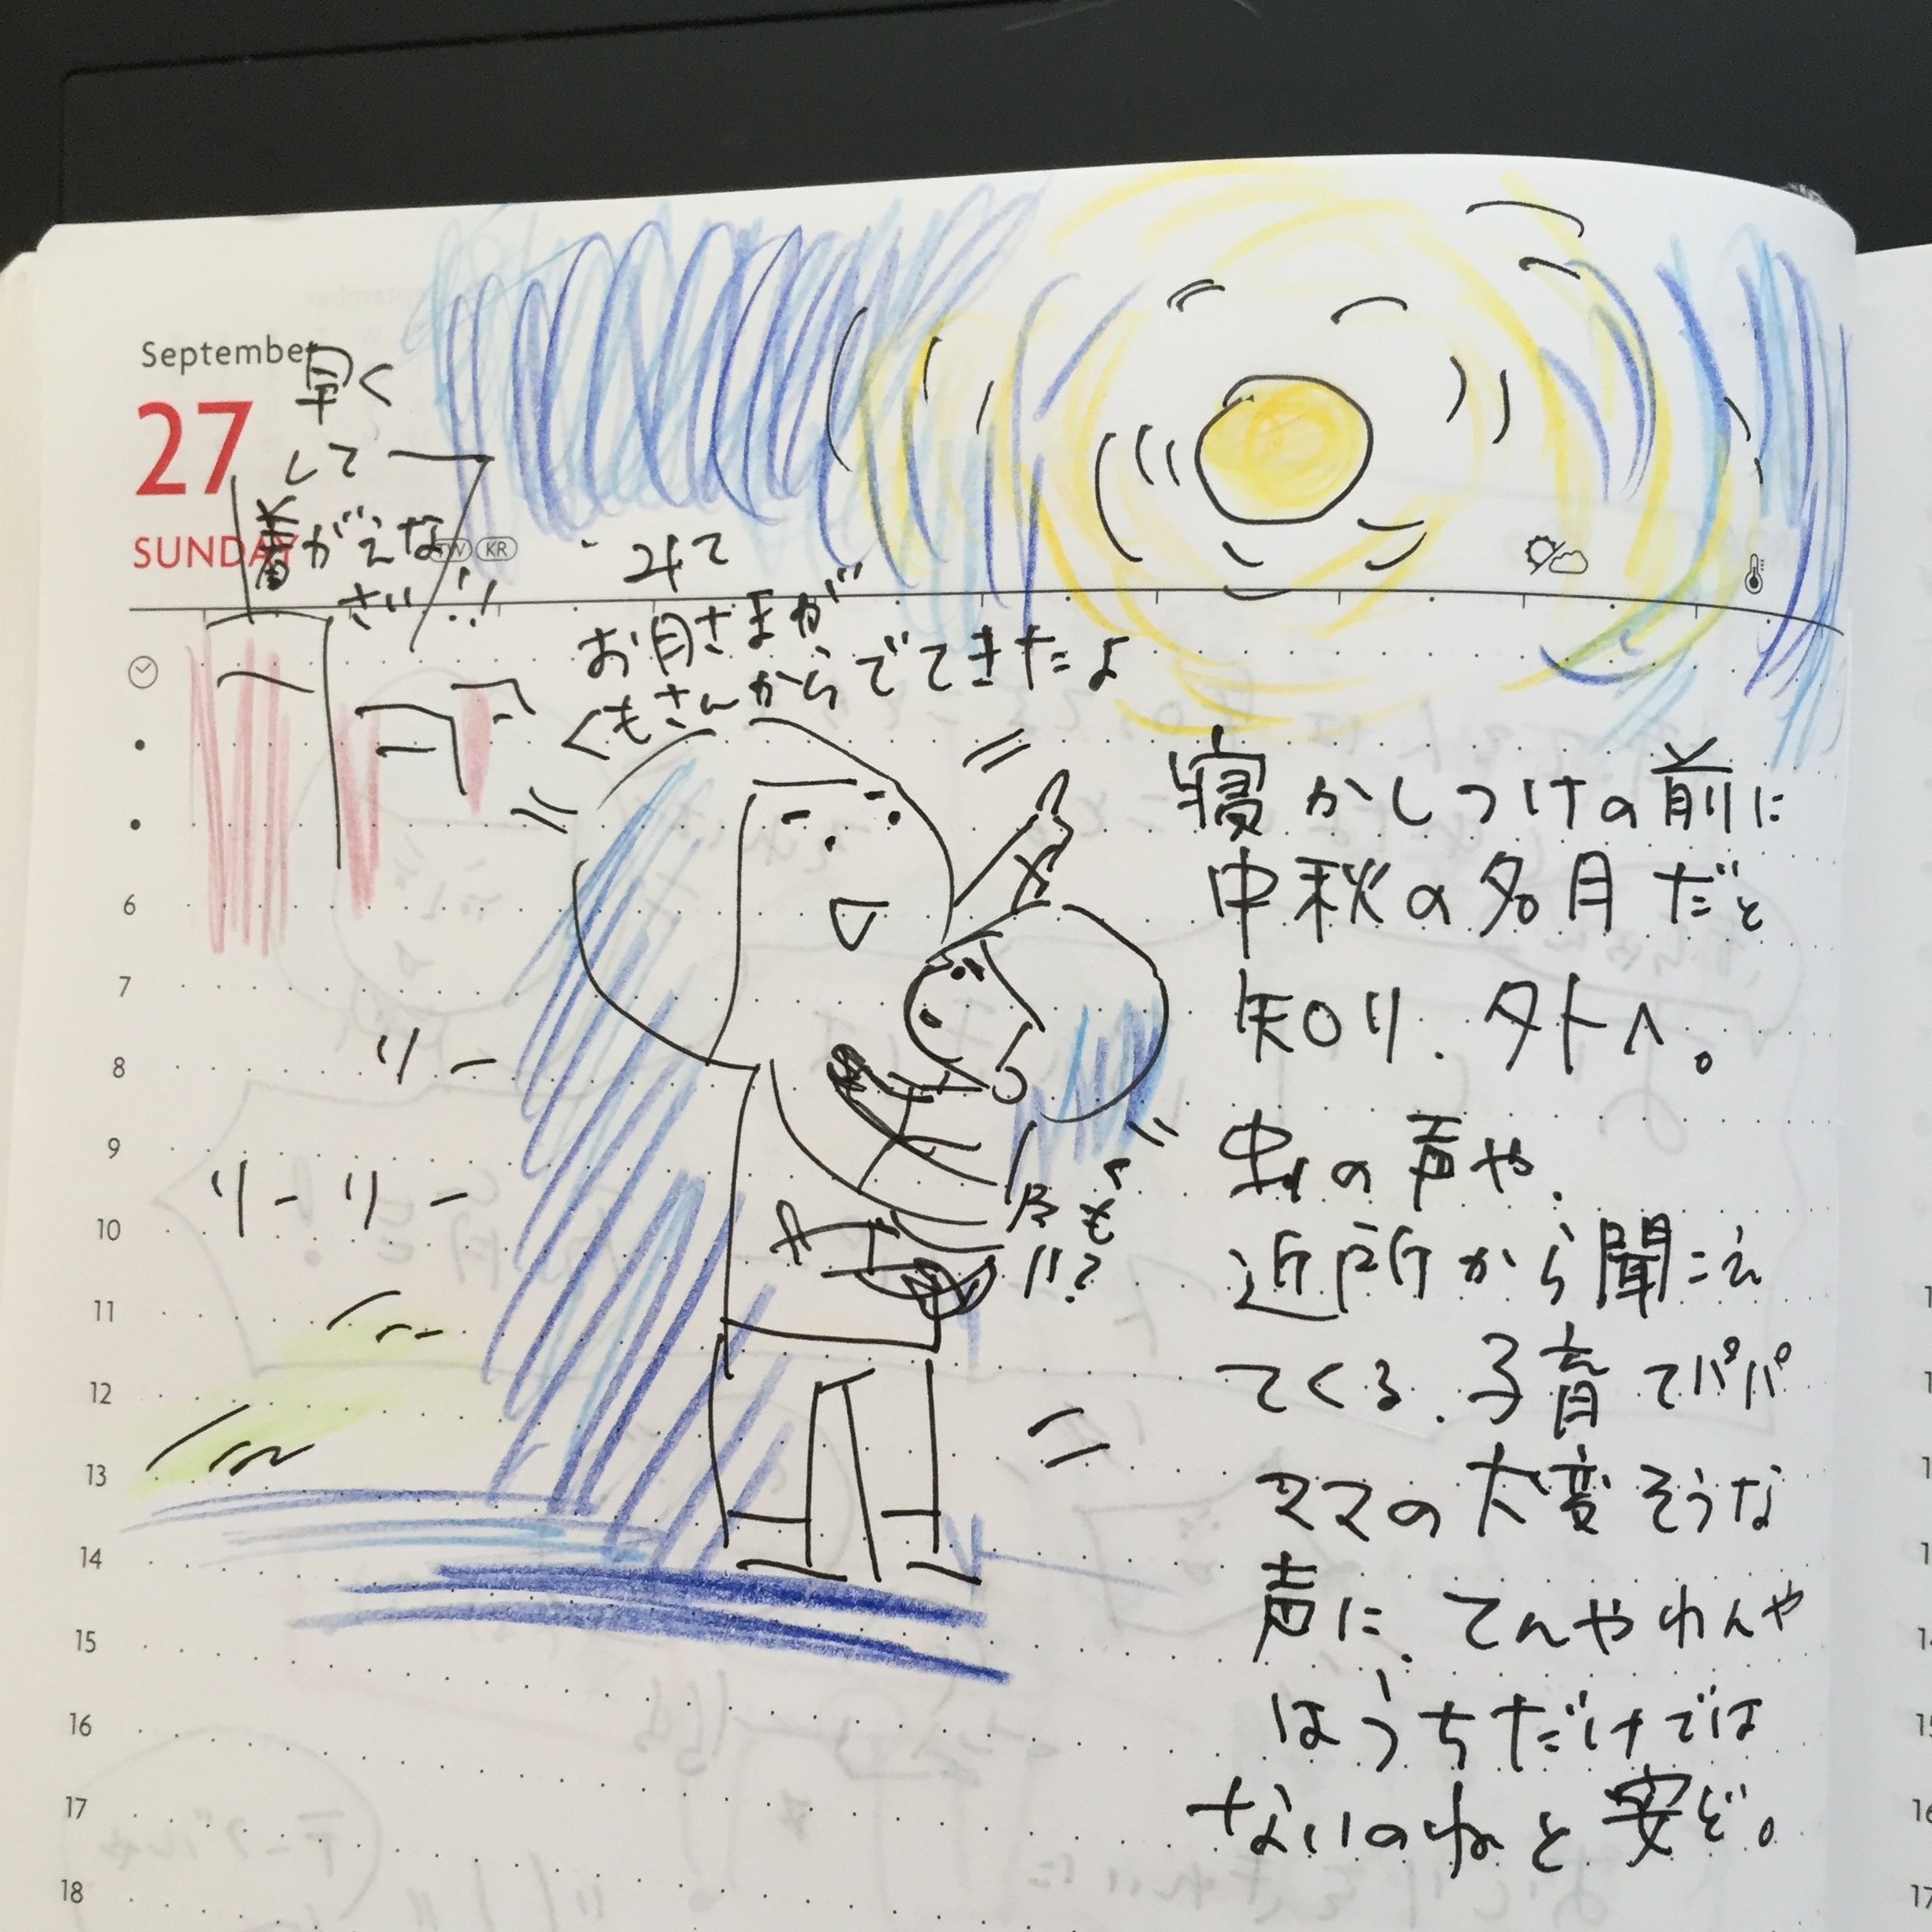 September
27
SUNDAY
KR
早く
して
着がえな
さい!!
みて
お月さまが
くもさんからでてきたよ
リー
リーリー
寝かしつけの前に
中秋の名月だと
知り、外へ。
虫の声や、
近所から聞こえ
てくる、子育てパパ
ママの大変そうな
声に、てんやわんや
はうちだけでは
ないのねと安ど。
6
7
8
9
10
11
12
13
14
15
16
17
18